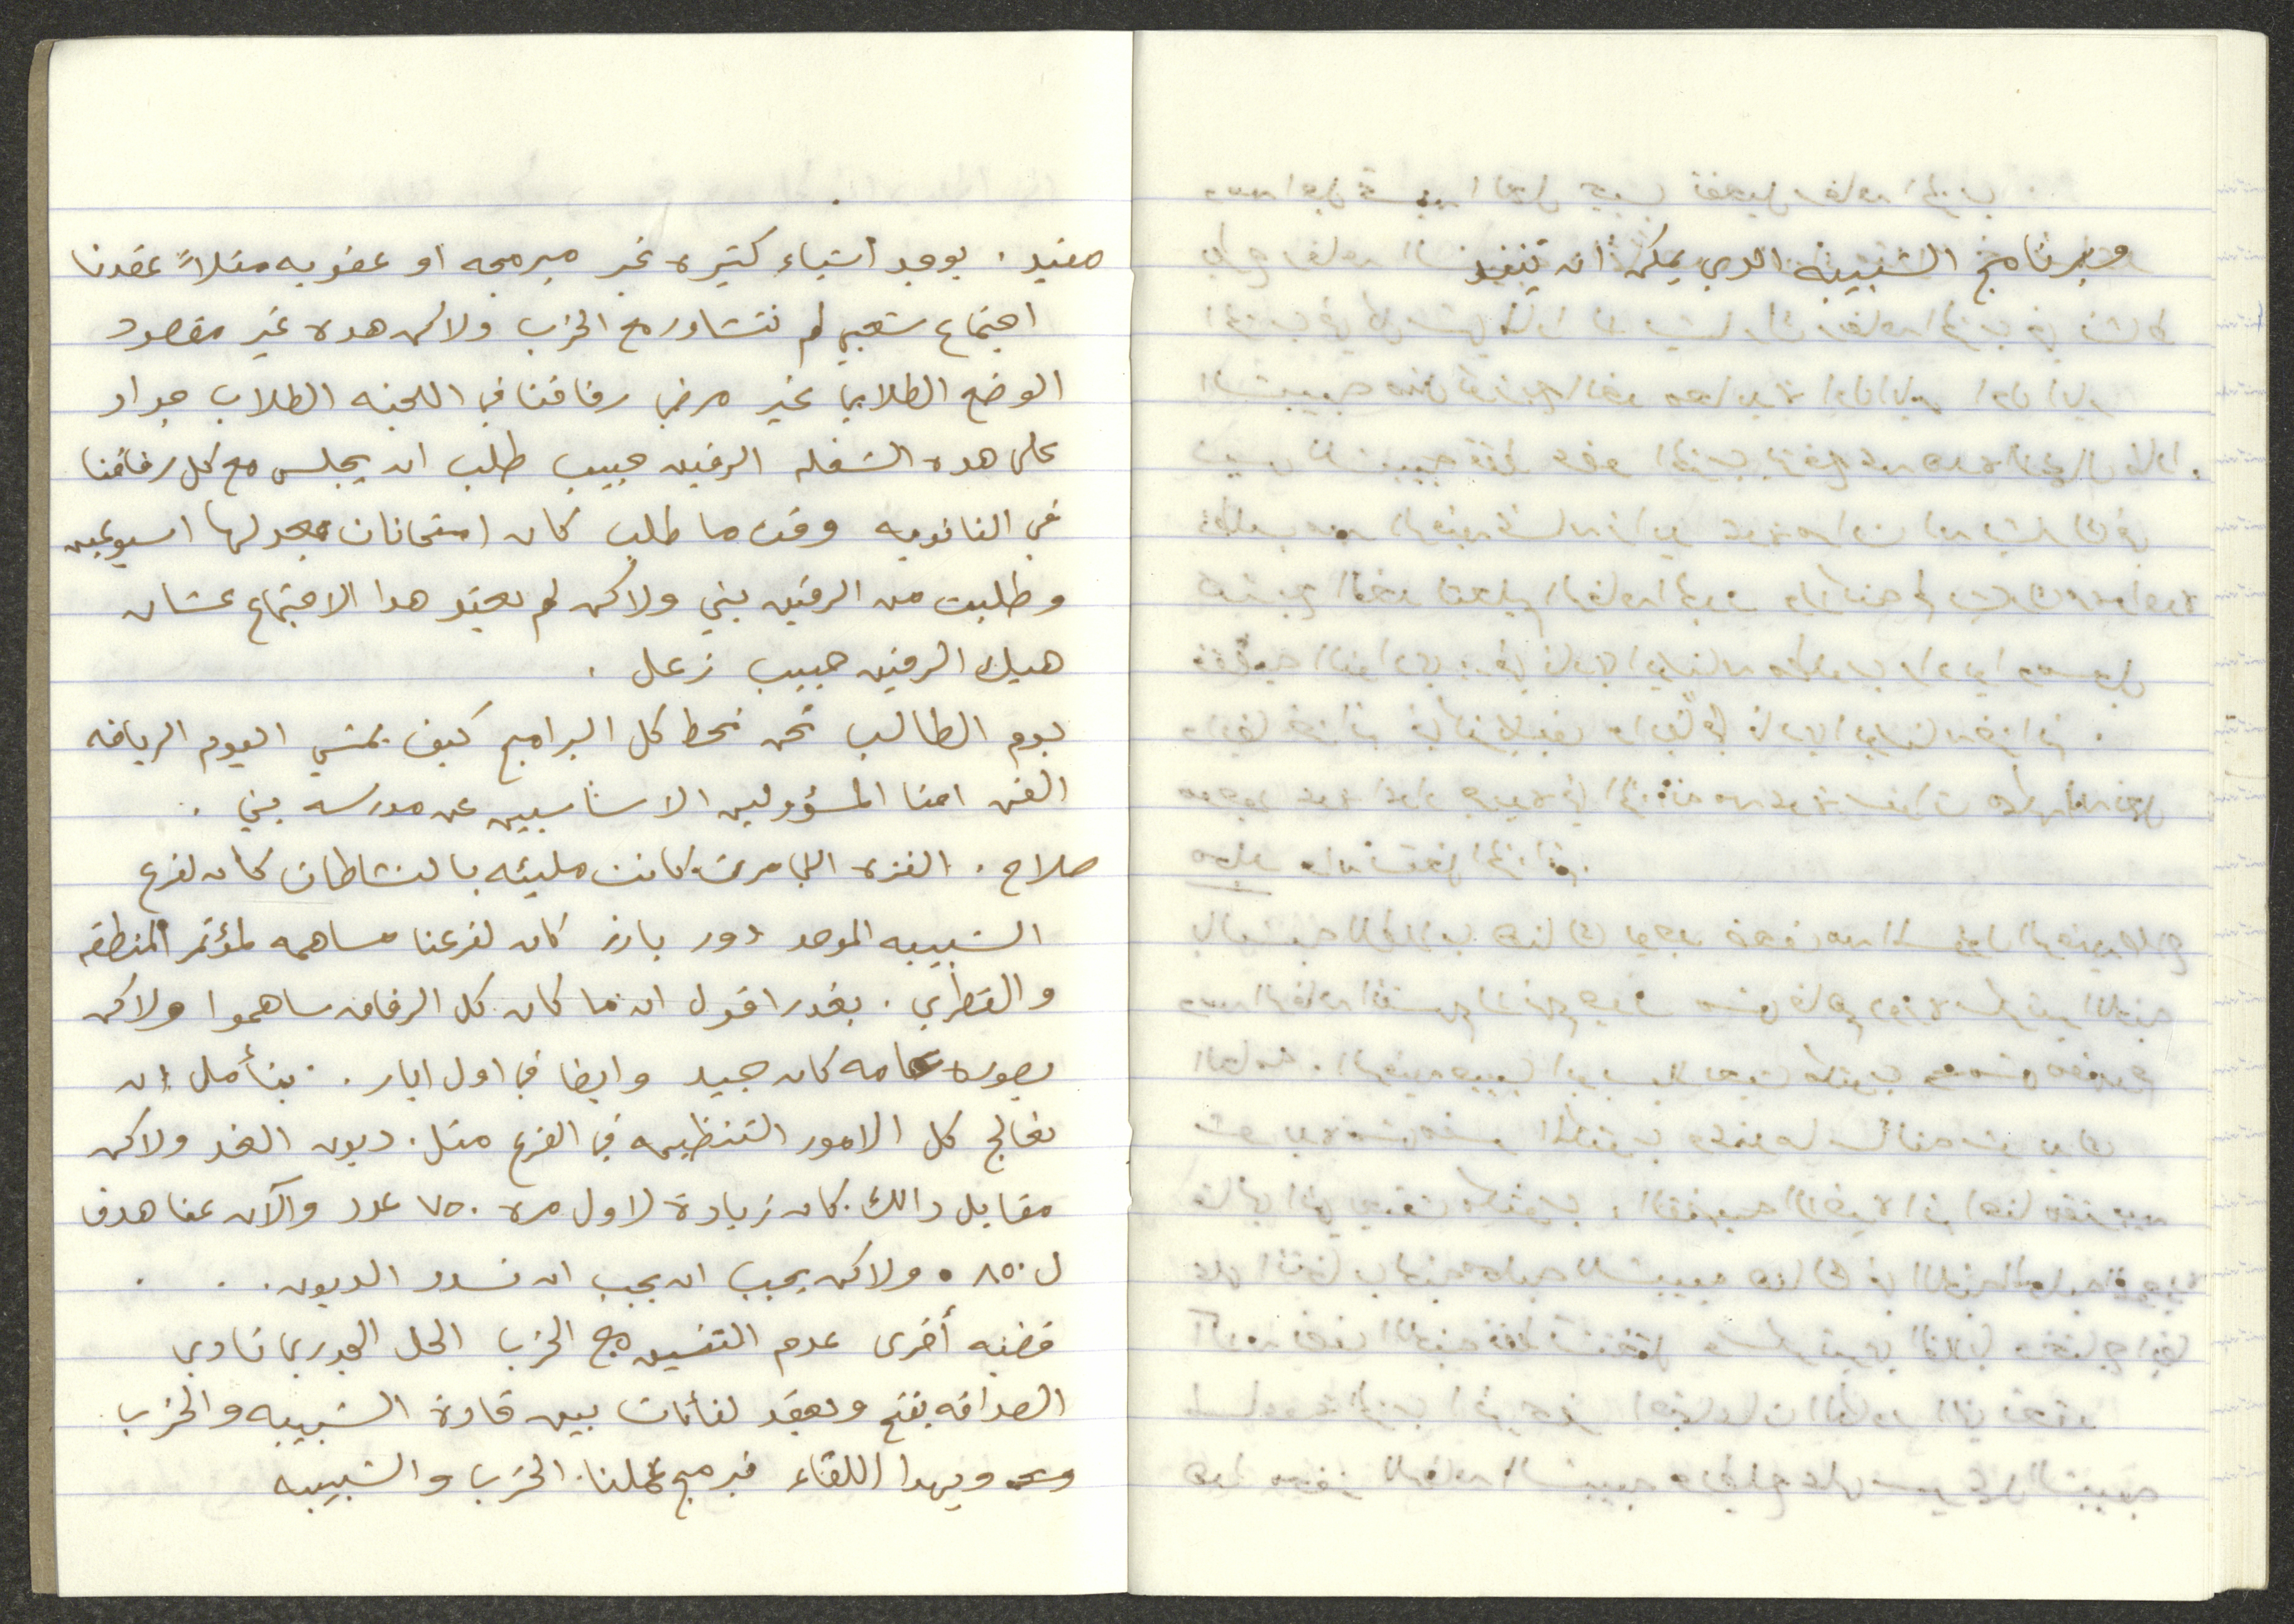 مفيد . يوجد أشياء كتيره غير مبرمجه او عفويه مثلاً عقدنا
اجتماع شعبي لم نتشاور مع الحزب ولاكن هده غير مقصود
الوضع الطلابي غير مرضي رفاقنا في اللجنه الطلاب جداد
على هده الشغله الرفيق حبيب طلب ان يجلس مع كل رفاقنا
في الثانويه وقت ما طلب كان امتحانات لها اسبوعين
وطلبت من الرفيق يني ولاكن لم يعقد هدا الاجتماع عشان
هيك الرفيق حبيب زعل .
يوم الطالب نحن نحط كل البرامج كيف يمشي اليوم الرياضه
الفن احنا المسؤولين الاساسيين عن مدرسه يني .
صلاح . الفتره اللي مرت كانت مليئه بالنشاطات كان لفرع
الشبيبه الموحد دور بارز كان لفرعنا مساهمه لمؤتمر المنطقه
والقطري . بقدر اقول ان ما كان كل الرفاق ساهموا ولاكن
بصوره عامه كان جيد وايضا في اول ايار . بنأمل ان
نعالج كل الامور التنظيميه في الفرع متل . ديون الغد ولاكن
مقابل دالك . كان زيادة لاول مره ٧٥٠ عدد والآن عنا هدف
ل ٨٥٠ ولاكن يجب ان يجب ان نسدد الديون . .
قضيه أخرى عدم التنسيق مع الحزب الحل الجدري نادي
الصداقه بفتح ونعقد لقأات بين قادة الشبيبه والحزب
وبهدا اللقاء نبرمج عملنا . الحزب والشبيبه
وبرنامج الشبيبه الدي يمكن ان ينفد